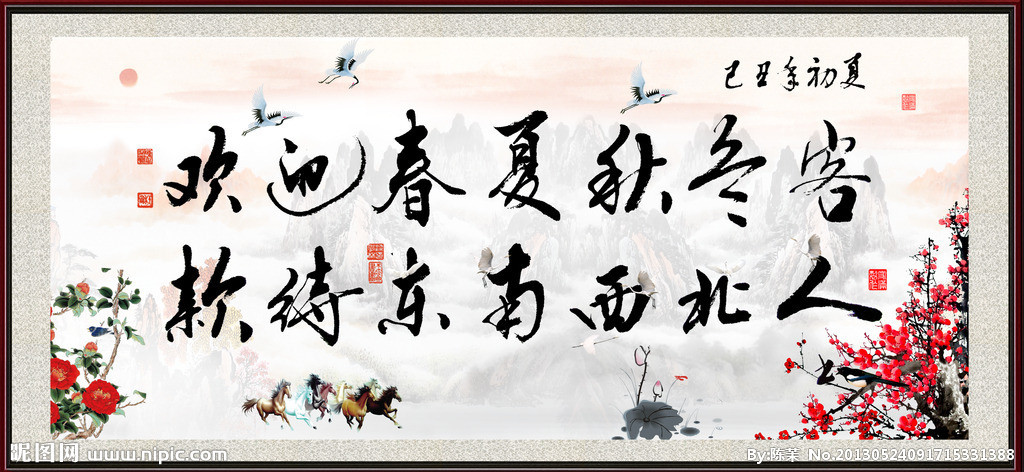 己丑年初夏
欢迎春夏秋冬客
款待东南西北人
昵图网 www.nipic.com
By:陈茉 No.20130524091715331388